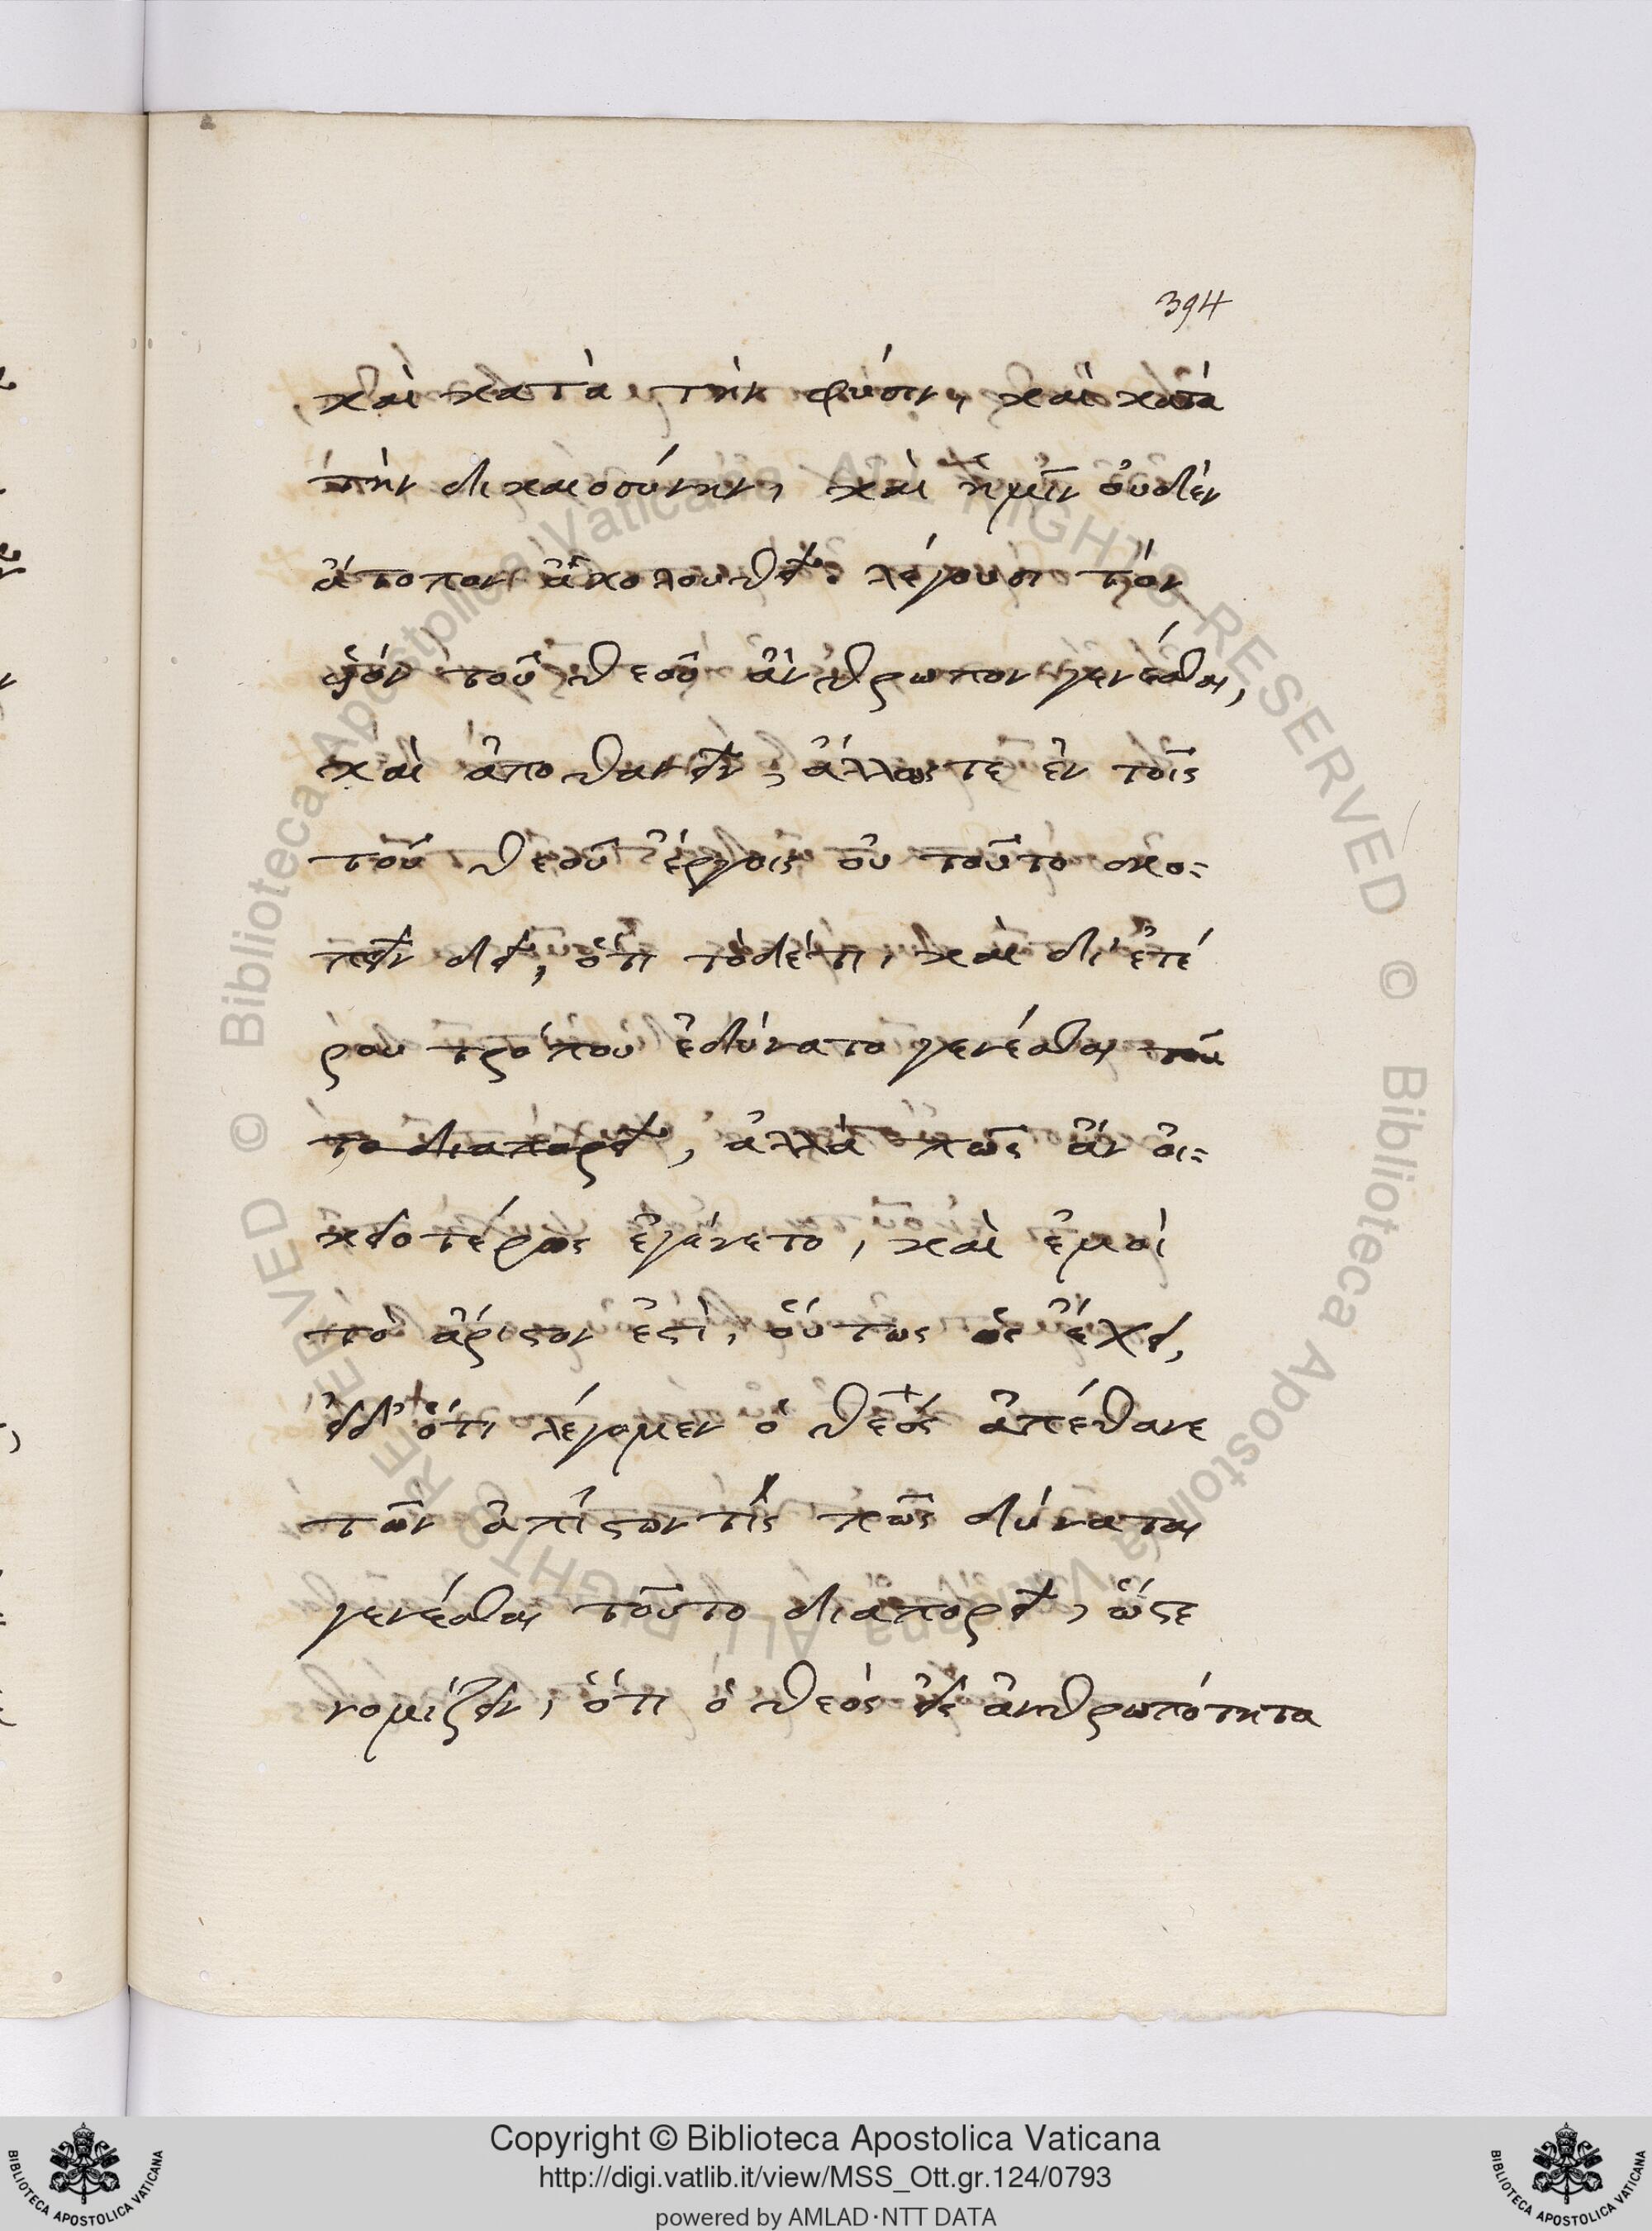 394
καὶ κατὰ τὴν φύσιν, καὶ κατὰ
τὴν δικαιοσύνην, καὶ ἡμῖν οὐδὲν
ἄτοπον ἀκολουθεῖ λέγουσι τὸν
υἱὸν τοῦ θεοῦ ἄνθρωπον γενέσθαι,
καὶ ἀποθανεῖν, ἄλλως τε ἐν τοῖς
τοῦ θεοῦ ἔργοις οὐ τοῦτο σκο=
πεῖν δεῖ, ὅτι τὸδέ τι, καὶ δι' ἑτέ
ρου τρόπου ἐδύνατο γενέσθαι τοῦ
το διαπορεῖ, ἀλλὰ πῶς ἂν οἰ=
κειοτέρως ἐγένετο, καὶ ἐμοὶ
τὸ ἄριστον ἐστὶ, οὕτως ὡς ἔχει,
εἰ δ' ὅτι λέγομεν ὁ θεός ἀπέθανε
τῶν ἀπίστων τίς πῶς δύναται
γενέσθαι τοῦτο διαπορεῖ, ὥστε
νομίζειν, ὅτι ὁ θεὸς εἰς ἀνθρωπότητα
Copyright © Biblioteca Apostolica Vaticana
http://digi.vatlib.it/view/MSS_Ott.gr.124/0793
powered by AMLAD·NTT DATA
BIBLIOTECA APOSTOLICA VATICANA
BIBLIOTECA APOSTOLICA VATICANA
© Biblioteca Apostolica Vaticana ALL RIGHTS RESERVED © Biblioteca Apostolica Vaticana ALL RIGHTS RESERVED